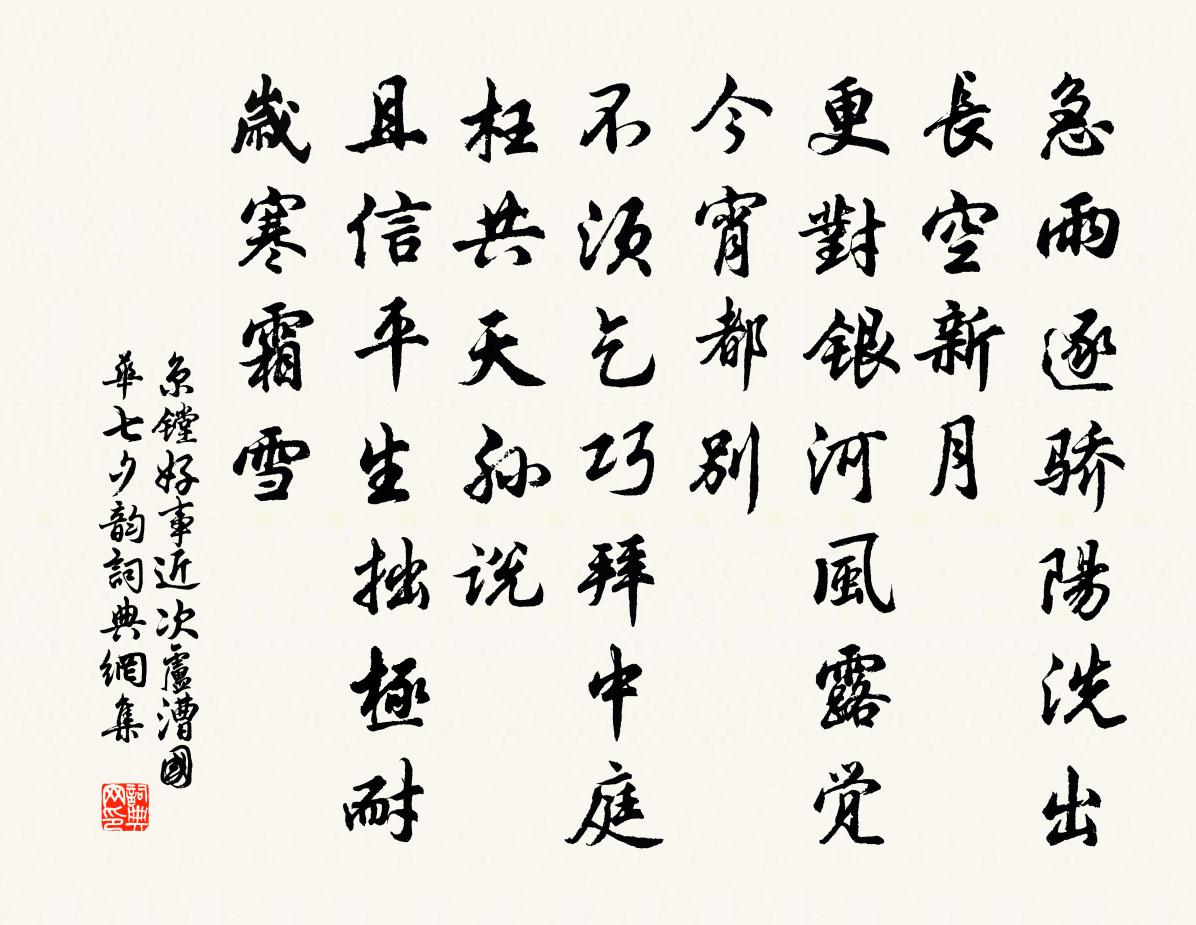 急雨逐骄陽洗出
長空新月
更對銀河風露觉
今宵都别
不須乞巧拜中庭
枉共天孙説
且信平生拙極耐
歲寒霜雪
京鏜好事近次盧漕國
華七夕韵詞典網集
詞典网印